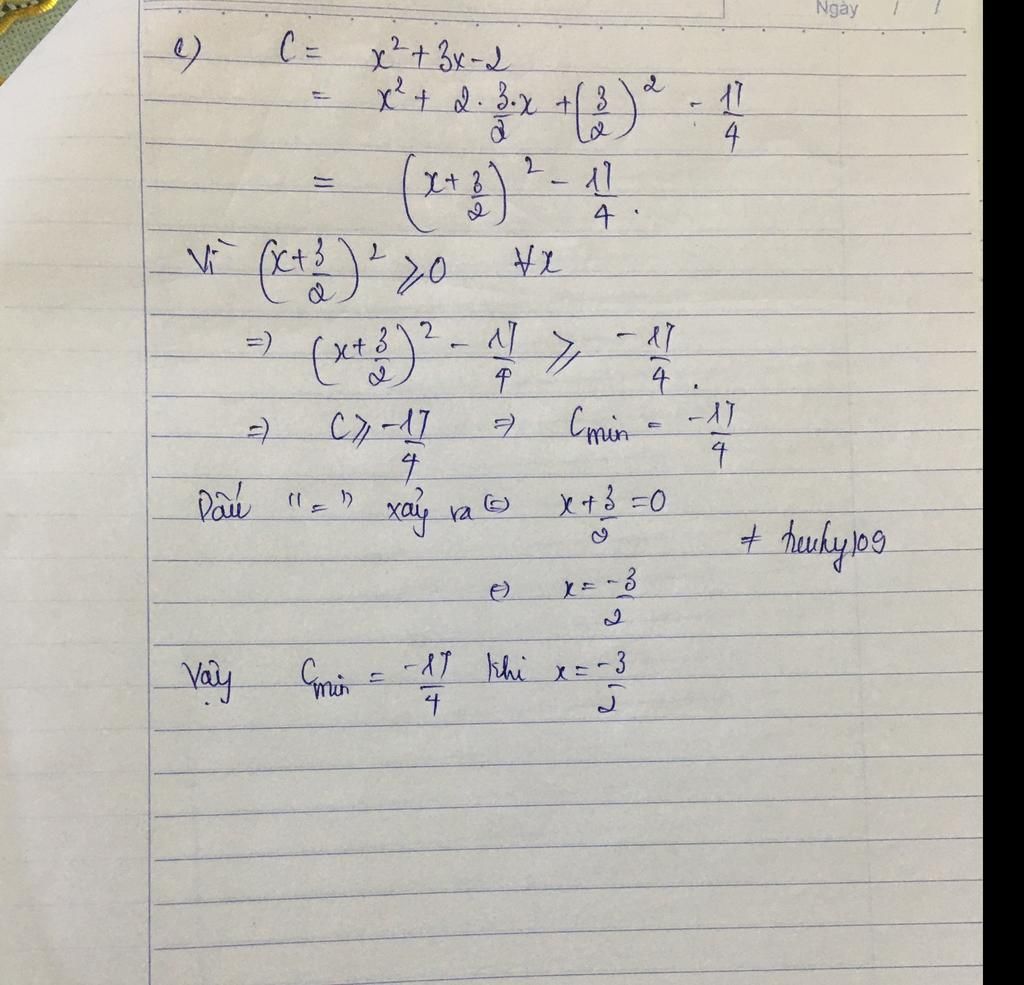 Ngày / /
c) C = x² + 3x - 2
= x² + 2 · 3/2 · x + (3/2)² - 17/4
= (x + 3/2)² - 17/4.
Vì (x + 3/2)² ⩾ 0 ∀x
=> (x + 3/2)² - 17/4 ⩾ -17/4.
=> C ⩾ -17/4 => Cmin = -17/4
Dấu "=" xảy ra <=> x + 3/2 = 0
<=> x = -3/2
Vậy Cmin = -17/4 khi x = -3/2